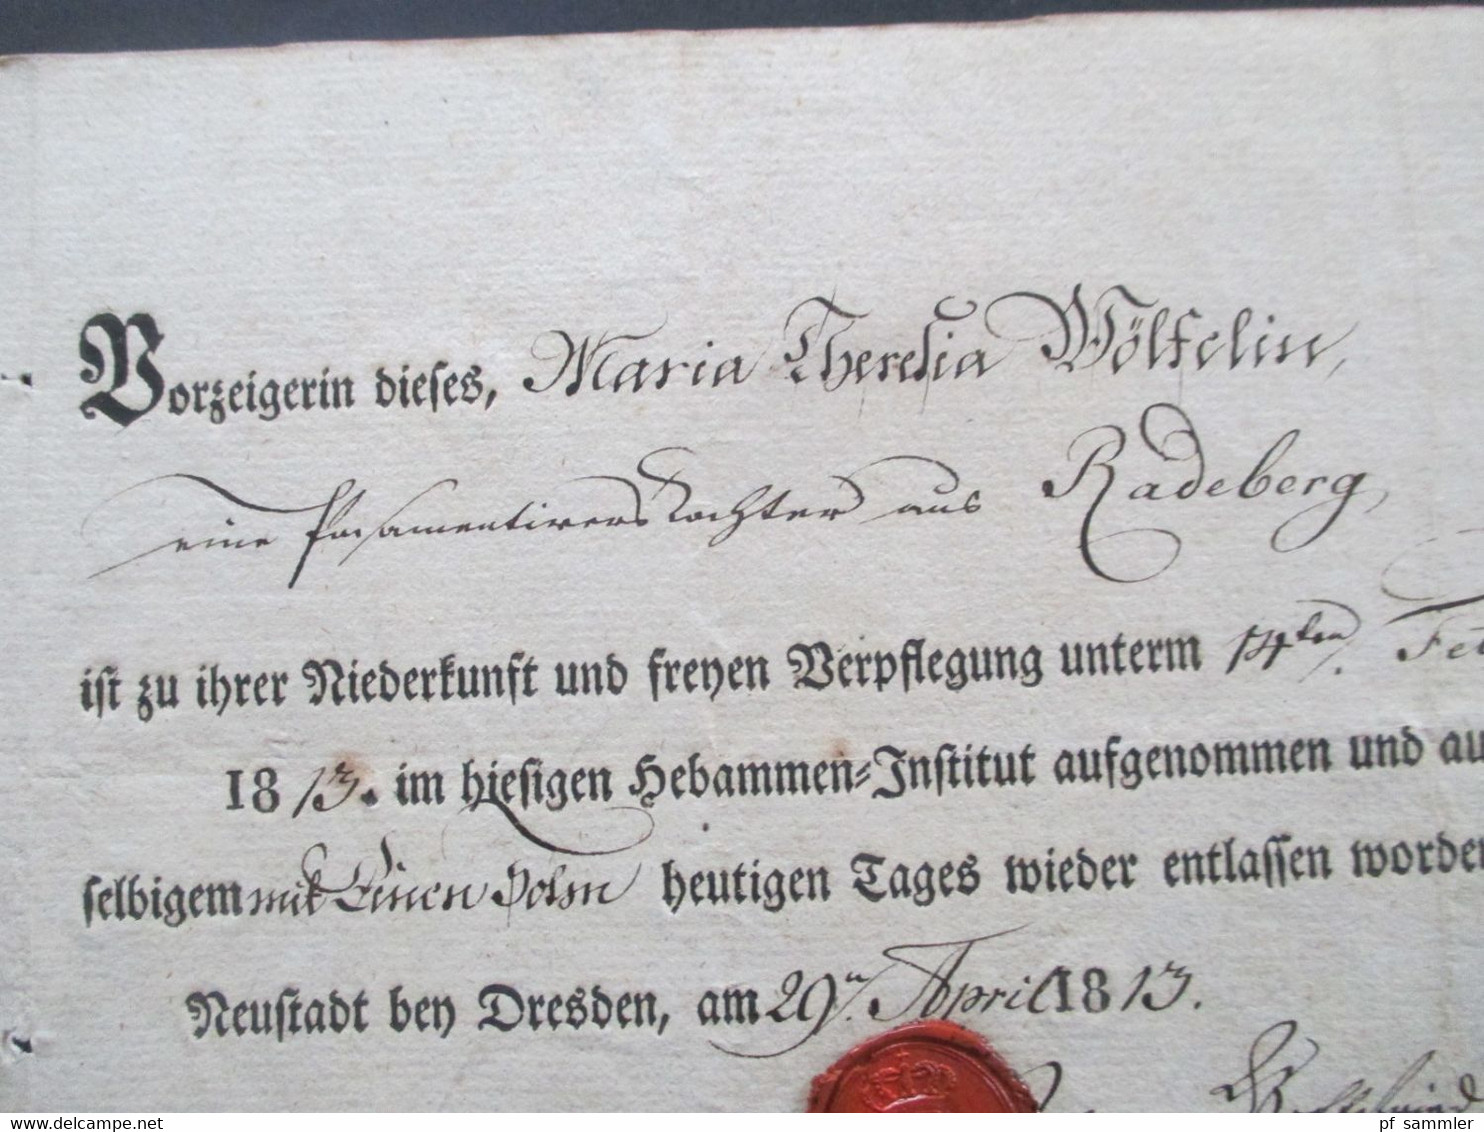 Vorzeigerin dieses, Maria Theresia Wölfelin,
eine Posamentirers Tochter aus Radeberg,
ist zu ihrer Niederkunft und freyen Verpflegung unterm 14ten
1813. im hiesigen Hebammen-Institut aufgenommen und
selbigem mit Einen Sohn heutigen Tages wieder entlassen worden
Neustadt bey Dresden, am 29n. April 1813.
pf sammler